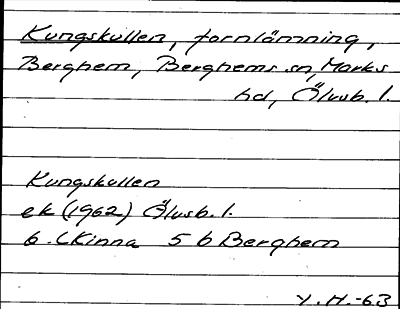 Kungskullen, fornlämning,
Berghem, Berghems sn, Marks
hd, Älvsb. l.
Kungskullen
ek (1962) Älvsb. l.
6. C Kinna 5 b Berghem
Y. H. -63